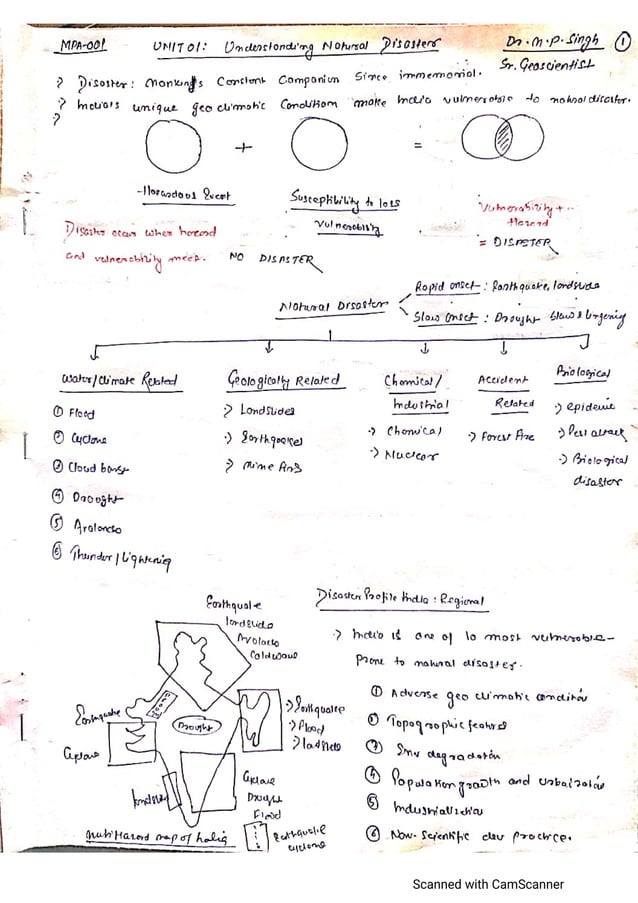 MPA-001
UNIT 01: Understanding Natural Disasters
Dr. M.P. Singh
Sr. Geoscientist
1
Disaster: Mankind's Constant Companion Since immemorial.
India's unique geo climatic Condition make India vulnerable to natural disaster.
+ =
Hazardous Event
Susceptibility to loss
Vulnerability
Vulnerability +
Hazard
= DISASTER
Disaster occurs when hazard
and vulnerability meet. NO DISASTER
Natural Disaster
Rapid onset: Earthquake, landslide
Slow onset: Drought Slow & lingering
Water/Climate Related
① Flood
② Cyclone
③ Cloud burst
④ Drought
⑤ Avalanche
⑥ Thunder/Lightening
Geologically Related
Landslides
Earthquakes
Mine
Chemical/
Industrial
Chemical
Nuclear
Accident
Related
Forest Fire
Biological
epidemic
Pest attack
Biological
disaster
Earthquake
landslide
Coldwave
Earthquake
Cyclone
Drought
Earthquake
Flood
landslide
Cyclone
Drought
Flood
Earthquake
cyclone
Multi Hazard map of India
Disaster Profile India: Regional
India is one of 10 most vulnerable-
prone to natural disaster.
① Adverse geo climatic condition
② Topographic features
③ degradation
④ Population growth and urbanization
⑤ Industrialization
⑥ Non-Scientific dev practice.
Scanned with CamScanner